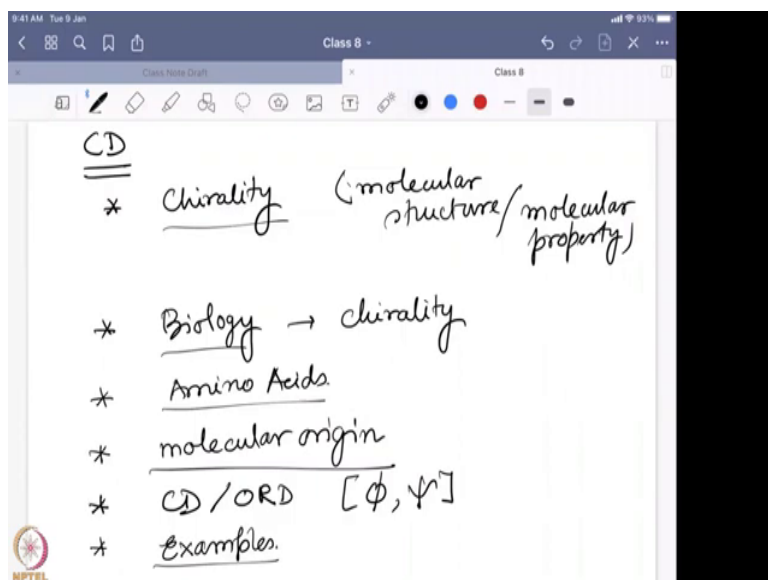 9:41 AM Tue 9 Jan 93%
Class 8
Class Note Draft
Class 8
CD
* Chirality (molecular
structure/molecular
property)
* Biology → chirality
* Amino Acids.
* molecular origin
* CD/ORD [ϕ, ψ]
* Examples.
NPTEL